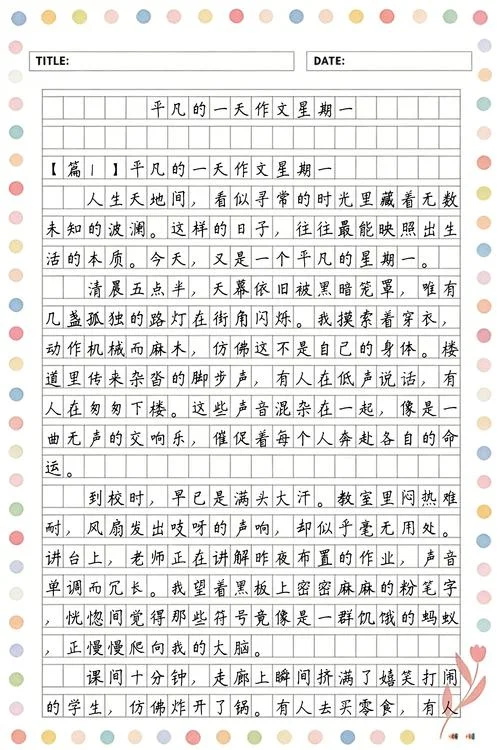 TITLE:
DATE:
平凡的一天作文星期一
【篇1】平凡的一天作文星期一
人生天地间，看似寻常的时光里藏着无数
未知的波澜。这样的日子，往往最能映照出生
活的本质。今天，又是一个平凡的星期一。
清晨五点半，天幕依旧被黑暗笼罩，唯有
几盏孤独的路灯在街角闪烁。我摸索着穿衣，
动作机械而麻木，仿佛这不是自己的身体。楼
道里传来杂沓的脚步声，有人在低声说话，有
人在匆匆下楼。这些声音混杂在一起，像是一
曲无声的交响乐，催促着每个人奔赴各自的命
运。
到校时，早已是满头大汗。教室里闷热难
耐，风扇发出吱呀的声响，却似乎毫无用处。
讲台上，老师正在讲解昨夜布置的作业，声音
单调而冗长。我望着黑板上密密麻麻的粉笔字
，恍惚间觉得那些符号竟像是一群饥饿的蚂蚁
，正慢慢爬向我的大脑。
课间十分钟，走廊上瞬间挤满了嬉笑打闹
的学生，仿佛炸开了锅。有人去买零食，有人